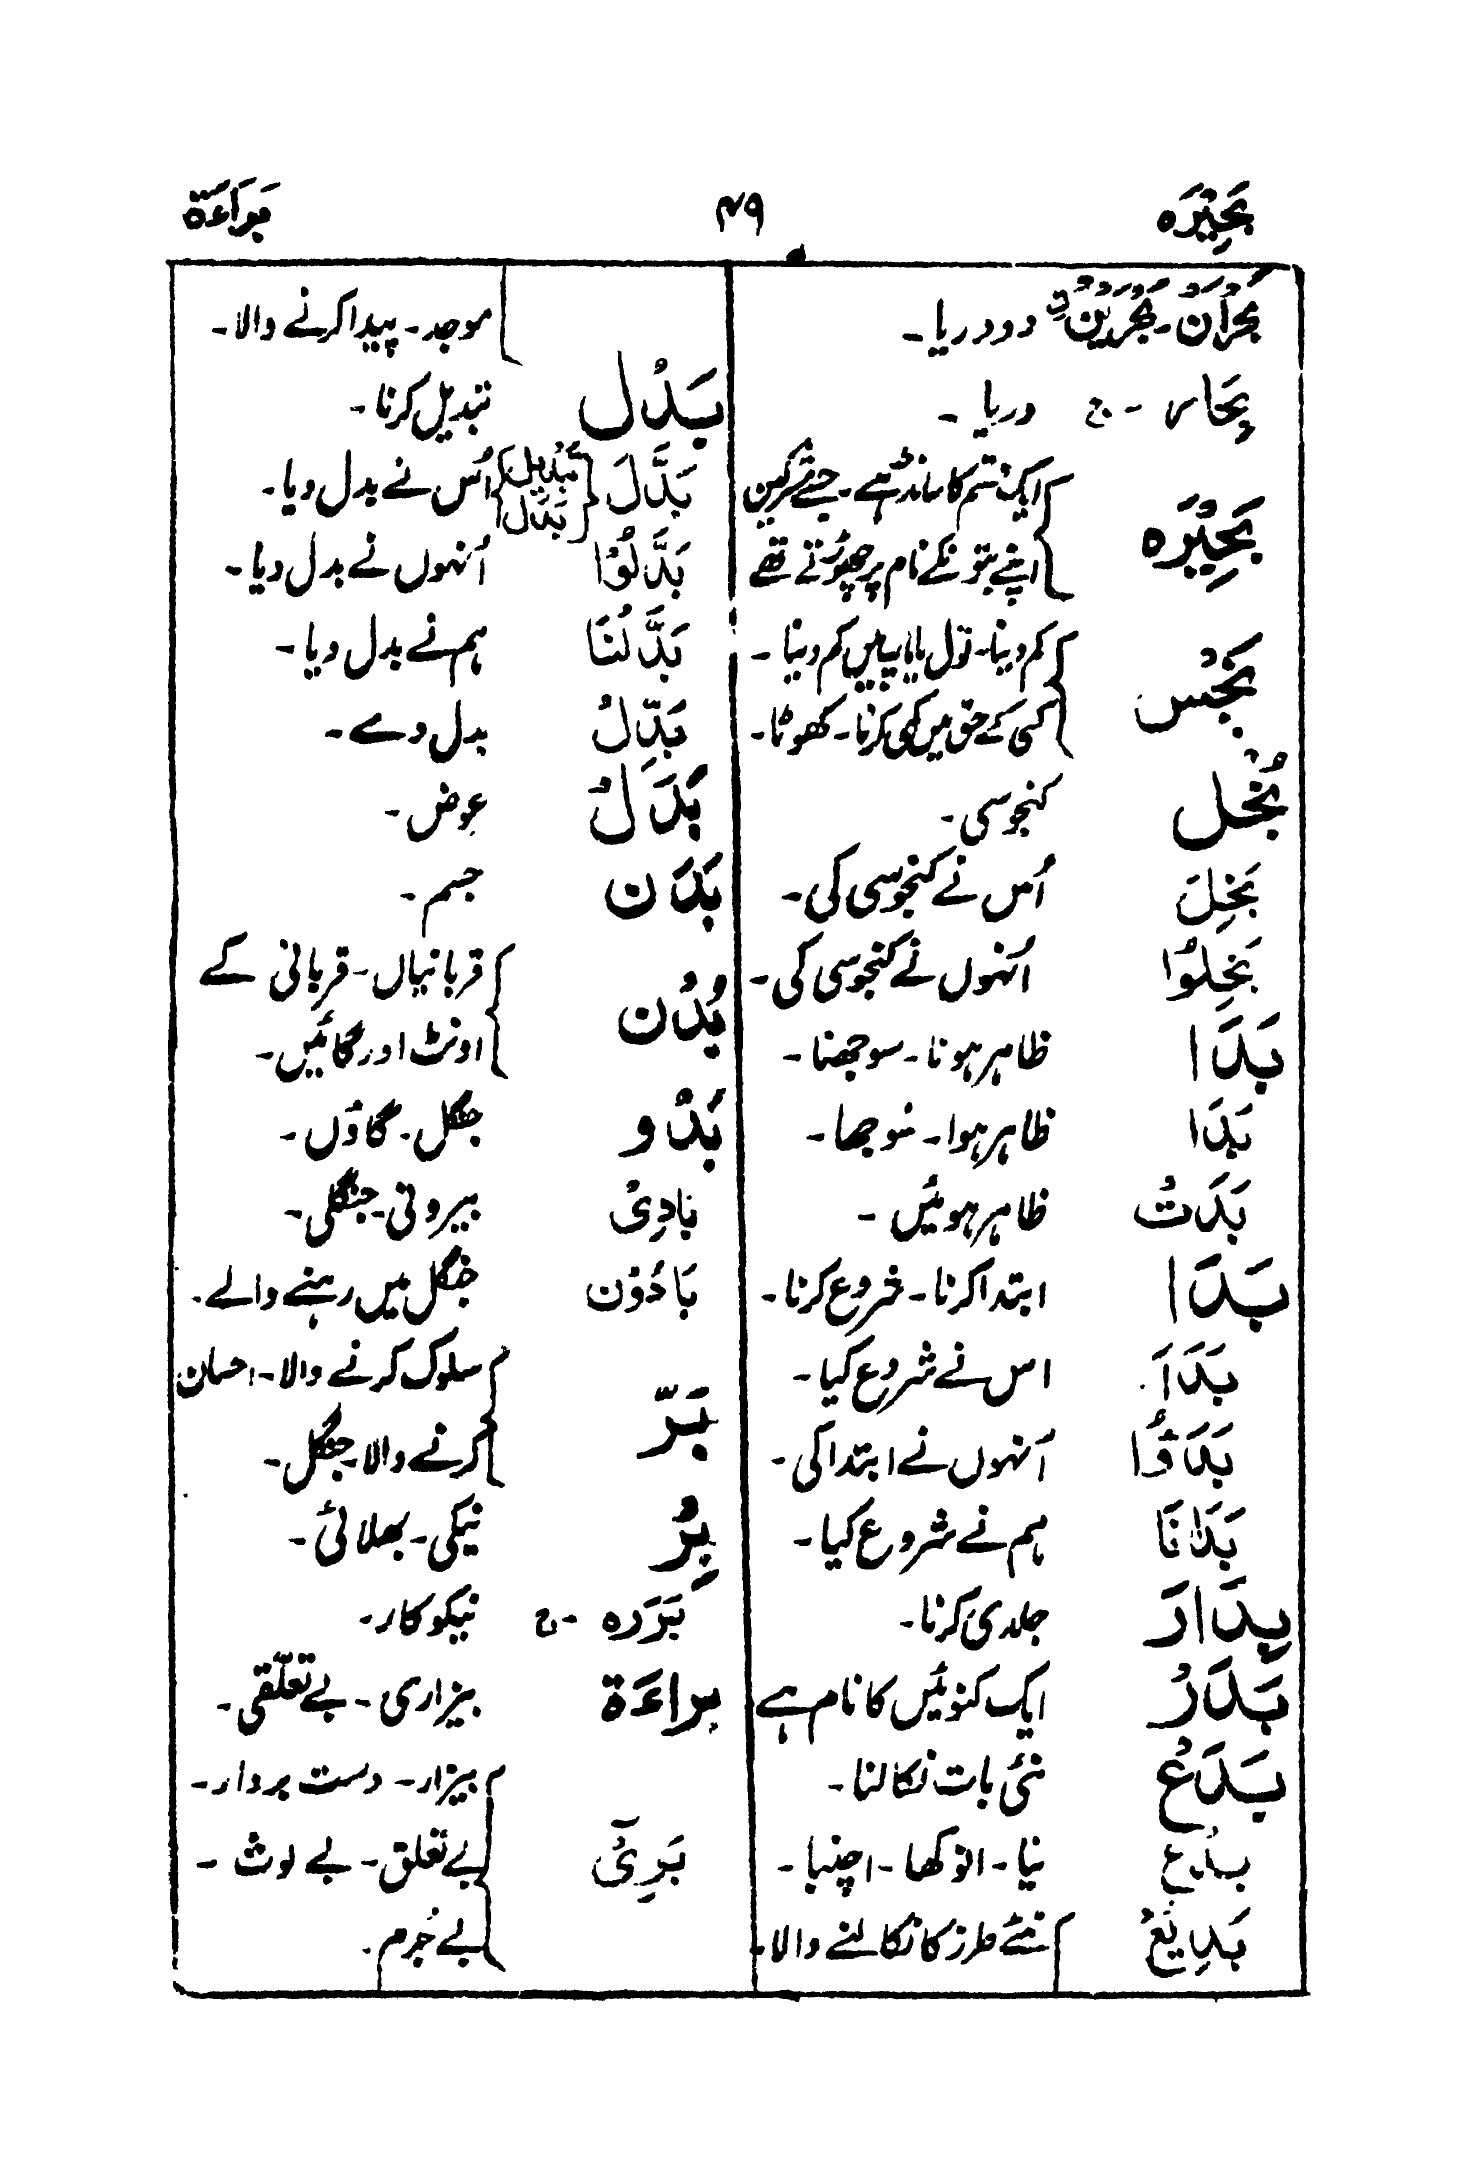 بَحِيْرَه ۴۹ بَرَاءَة
بَحْرَانْ - بَحْرَيْنْ دو دریا -
بِحَار - ج دریا -
بَحِيْرَه ایک قسم کا سانڈ ہے - جسے مشرکین
اپنے بتوں کے نام پر چھوڑتے تھے
بَخْس کم دینا - تول یا ماپ میں کم دینا -
کسی کے حق میں کمی کرنا - کھوٹا -
بُخْل کنجوسی -
بَخِلَ اُس نے کنجوسی کی -
بَخِلُوْا اُنہوں نے کنجوسی کی -
بَدَا ظاہر ہونا - سوجھنا -
بَدَا ظاہر ہوا - سُوجھا -
بَدَتْ ظاہر ہوئیں -
بَدَا ابتدا کرنا - شروع کرنا -
بَدَاَ اس نے شروع کیا -
بَدَاؤُا اُنہوں نے ابتدا کی -
بَدَانَا ہم نے شروع کیا -
بِدَارَ جلدی کرنا -
بَدَرْ ایک کنوئیں کا نام ہے
بَدَعْ نئی بات نکالنا -
بِدْع نیا - انوکھا - اچنبا -
بَدِيْعْ نئے طرز کا نکالنے والا -
موجد - پیدا کرنے والا -
بَدْل تبدیل کرنا -
بَدَّلَ { تَبْدِيْل بَدَل } اُس نے بدل دیا -
بَدَّلُوْا اُنہوں نے بدل دیا -
بَدَّلْنَا ہم نے بدل دیا -
بَدِّلْ بدل دے -
بَدَلْ عوض -
بَدَن جسم -
بُدْن قربانیاں - قربانی کے
اونٹ اور گائیں -
بَدْو جنگل - گاؤں -
بَادِیْ بیرونی - جنگلی -
بَادُوْن جنگل میں رہنے والے -
بَرّ سلوک کرنے والا - احسان
کرنے والا - جنگل -
بِرُّ نیکی - بھلائی -
بَرَرَه - ج نیکوکار -
بَراءَة بیزاری - بے تعلّقی -
بَرِیْٓءُ بیزار - دست بردار -
بے تعلق - بے لوث -
بے جُرم -